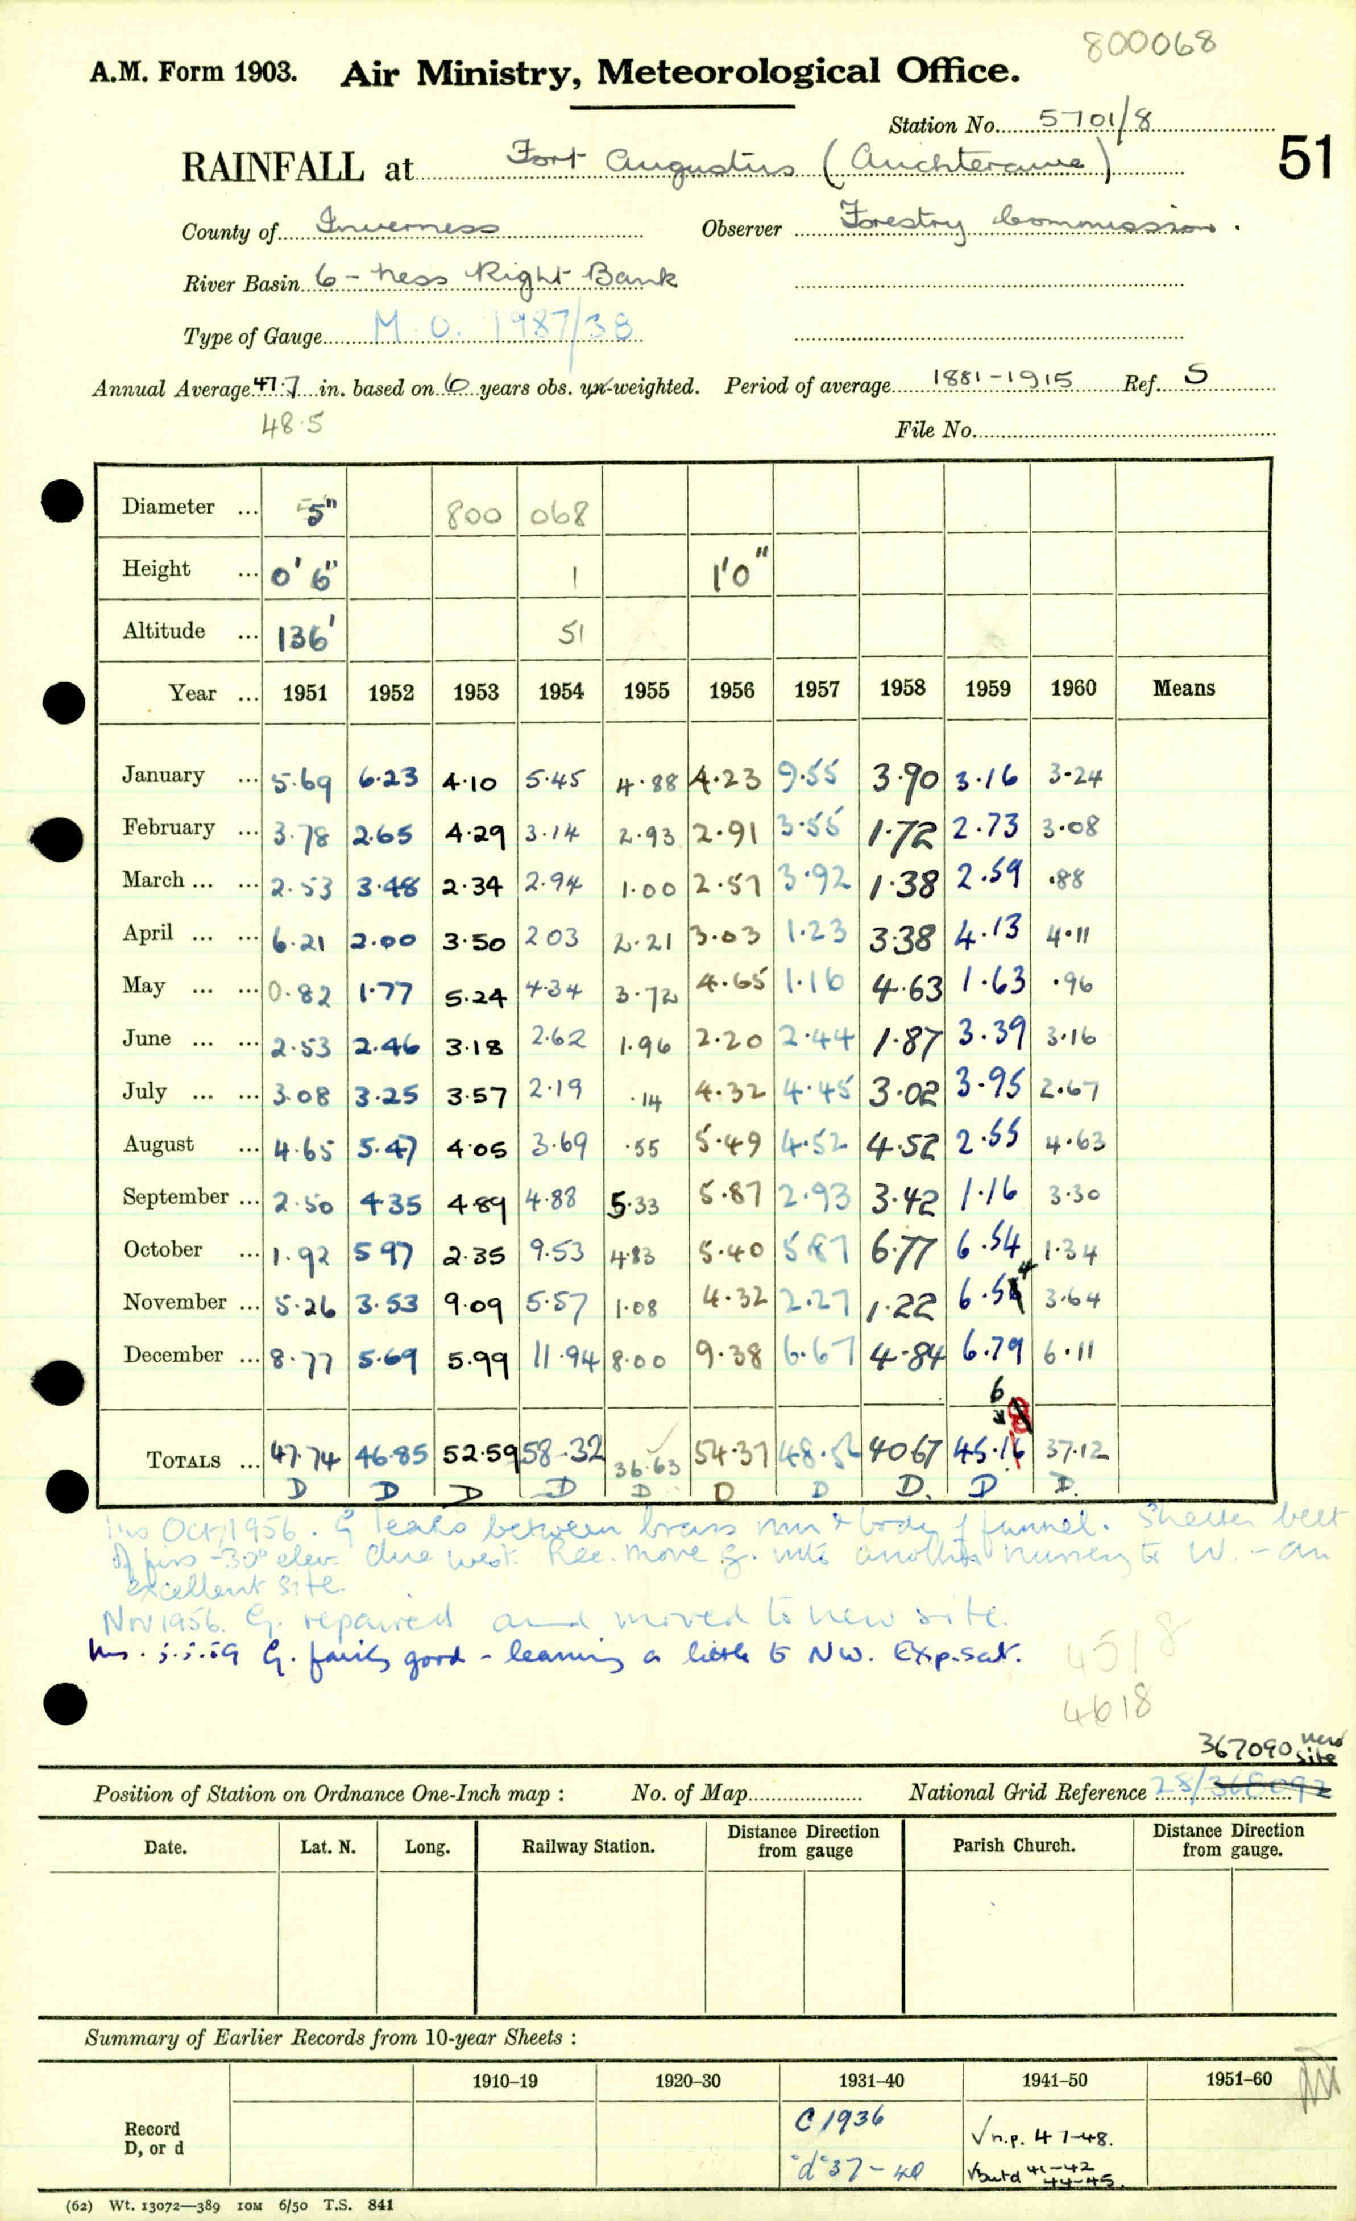 800068
A.M. Form 1903. Air Ministry, Meteorological Office.
Station No. 5701/8
RAINFALL at Fort Augustus (Auchterawe) 51
County of Inverness Observer Forestry Commission.
River Basin 6 - Ness Right Bank
Type of Gauge M.O. 1987/38
Annual Average 47.7 in. based on 6 years obs. un-weighted. Period of average 1881-1915 Ref. S
48.5
File No.
Diameter ... 5" 800 068
Height ... 0' 6" 1 1'0"
Altitude ... 136' 51
Year ... 1951 1952 1953 1954 1955 1956 1957 1958 1959 1960 Means
January ... 5.69 6.23 4.10 5.45 4.88 4.23 9.55 3.90 3.16 3.24
February ... 3.78 2.65 4.29 3.14 2.93 2.91 3.55 1.72 2.73 3.08
March ... ... 2.53 3.48 2.34 2.94 1.00 2.57 3.92 1.38 2.59 .88
April ... ... 6.21 2.00 3.50 2 03 2.21 3.03 1.23 3.38 4.13 4.11
May ... ... 0.82 1.77 5.24 4.34 3.72 4.65 1.16 4.63 1.63 .96
June ... ... 2.53 2.46 3.18 2.62 1.96 2.20 2.44 1.87 3.39 3.16
July ... ... 3.08 3.25 3.57 2.19 .14 4.32 4.45 3.02 3.95 2.67
August ... 4.65 5.47 4.05 3.69 .55 5.49 4.52 4.52 2.55 4.63
September ... 2.50 4.35 4.89 4.88 5.33 5.87 2.93 3.42 1.16 3.30
October ... 1.92 5 97 2.35 9.53 4.83 5.40 5.87 6.77 6.54 1.34
November ... 5.26 3.53 9.09 5.57 1.08 4.32 2.27 1.22 6.54 3.64
December ... 8.77 5.69 5.99 11.94 8.00 9.38 6.67 4.84 6.79 6.11
6
TOTALS ... 47.74 46.85 52.59 58.32 36.63 54.37 48.56 40.67 45.16 37.12
D D D D D D D D. D D.
Ins Oct, 1956. G leaks between brass rim & body of funnel. Shelter belt
of firs -30° elev. due west. Rec. move g. into another nursery to W. - an
excellent site.
Nov 1956. G. repaired and moved to new site.
Ins. 5.5.59 G. fairly good - leaning a little to NW. Exp. sat.
4518
4618
367090 new site
Position of Station on Ordnance One-Inch map : No. of Map National Grid Reference 28/368092
Date. Lat. N. Long. Railway Station. Distance from Direction gauge Parish Church. Distance from Direction gauge.
Summary of Earlier Records from 10-year Sheets :
1910-19 1920-30 1931-40 1941-50 1951-60
Record C 1936 √ n.p. 47-48.
D, or d "d" 37-40 √ but d 41-42 44-45.
(62) Wt. 13072—389 10M 6/50 T.S. 841